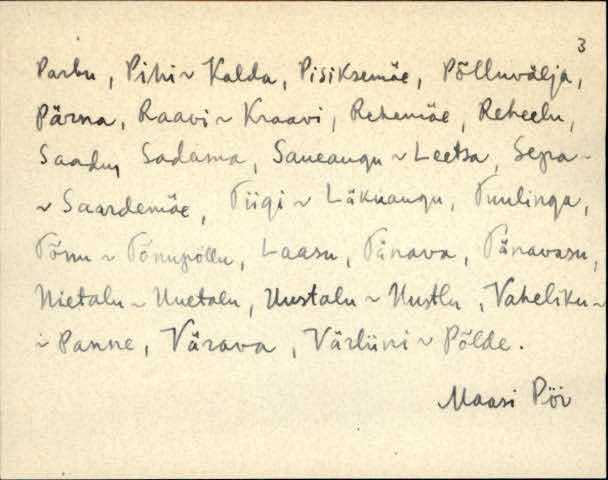 3
Parbu, Pihi ~ Kalda, Pisiksemäe, Põlluvälja,
Pärna, Raavi ~ Kraavi, Rehemäe, Reheelu,
Saadu, Sadama, Saueaugu ~ Leetsa, Sepa ~
~ Saardemäe, Tiigi ~ Läkuaugu, Tuulinga,
Tõnu ~ Tõnupõllu, Laasu, Tänava, Tänavasu,
Uietalu ~ Uuetalu, Uustalu ~ Uustlu, Vaheliku ~
~ Panne, Värava, Värliini ~ Põlde.
Maasi Pöi